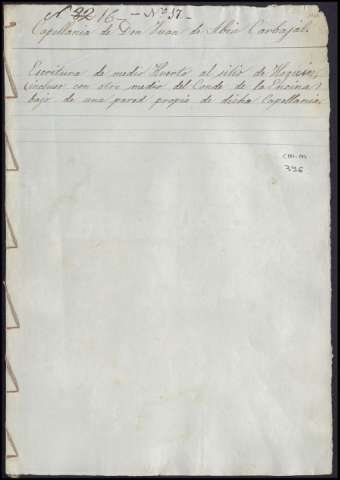 Nº 22 16 - Nº 37 -
Capellania de Don Juan de Carbajal.
Escritura de medio Huerto al sitio de
incluso con otro medio del Conde de la Encina,
bajo de una pared propia de dicha Capellania.
CM-M
396